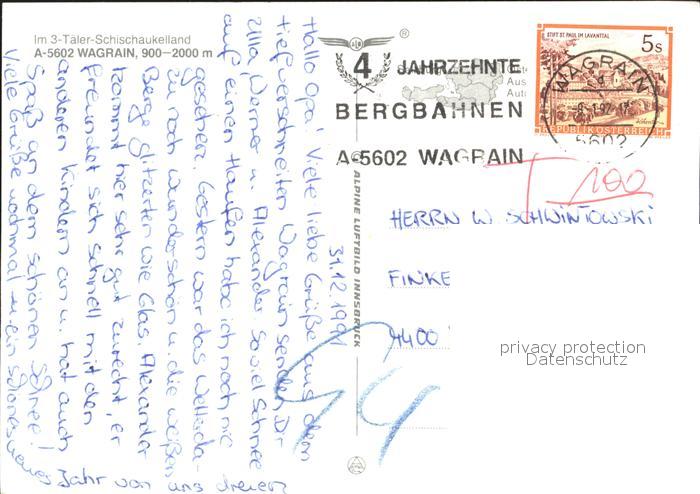 Im 3-Täler-Schischaukelland
A-5602 WAGRAIN, 900–2000 m
31.12.1991
Hallo Opa! Viele liebe Grüße aus dem
tiefverschneiten Wagrain senden Dir
Ulla, Werner u. Alexander. Soviel Schnee
auf einen Haufen habe ich noch nie
gesehen. Gestern war das Wetter da-
zu noch wunderschön u. die weißen
Berge glitzerten wie Glas. Alexander
kommt hier sehr gut zurecht, er
freundet sich schnell mit den
anderen Kindern an u. hat auch
Spaß an dem schönen Schnee!
Viele Grüße nochmal u. ein schönes neues
Jahr von uns dreien
ALPINE LUFTBILD INNSBRUCK
®
4 JAHRZEHNTE
BERGBAHNEN
A-5602 WAGRAIN
Aus
Aut
STIFT ST. PAUL IM LAVANTTAL
5 S
REPUBLIK ÖSTERREICH
WAGRAIN
5602
T 100
HERRN W. SCHWINTOWSKI
FINKE
4400
44
privacy protection
Datenschutz